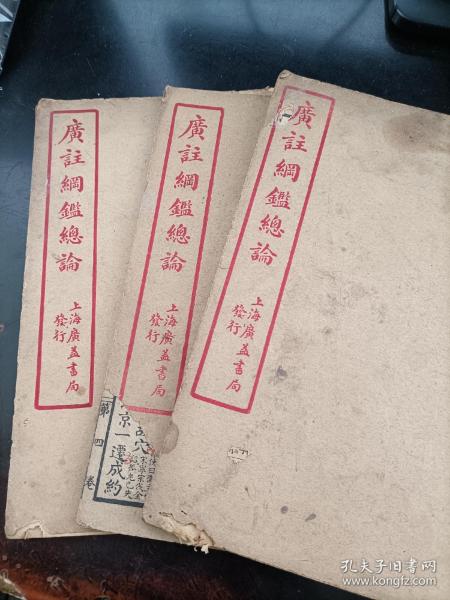 廣註綱鑑總論
上海廣益書局
發行
廣註綱鑑總論
上海廣益書局
發行
廣註綱鑑總論
上海廣益書局
發行
第四卷
京一遷成約
孔夫子旧书网
www.kongfz.com